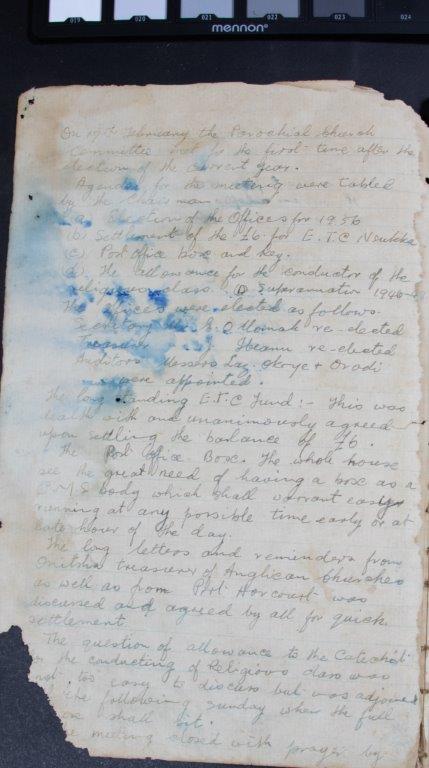 019 020 021 022 023 024
mennon®
On 19th February the Parochial Church
Committee met for the first time after the
election of the current year.
Agenda for the meeting were tabled
by the Chairman
(a) Election of the Offices for 1956
(b) Settlement of the £6 for E.T.C
(c) Post office box and key.
(d) The allowance for the conductor of the
religious class. Superannuation 1946
The offices were elected as follows.
Secretary re-elected
Treasurer Ibeanu re-elected
Auditors Messers Okoye + Oradi
were appointed.
The long standing E.T.C Fund:- This was
dealth with and unanimously agreed
upon settling the balance of £6.
the Post Office Box. The whole house
see the great need of having a box as a
C.M.S body which shall warrant easy
running at any possible time early or at
late hour of the day.
The long letters and reminders from
Onitsha treasurer of Anglican Churches
as well as from Port Harcourt was
discussed and agreed by all for quick
settlement.
The question of allowance to the Catechist
the conducting of Religious class was
not too easy to discuss but was adjourned
the following Sunday when the full
shall sit.
meeting closed with prayer by